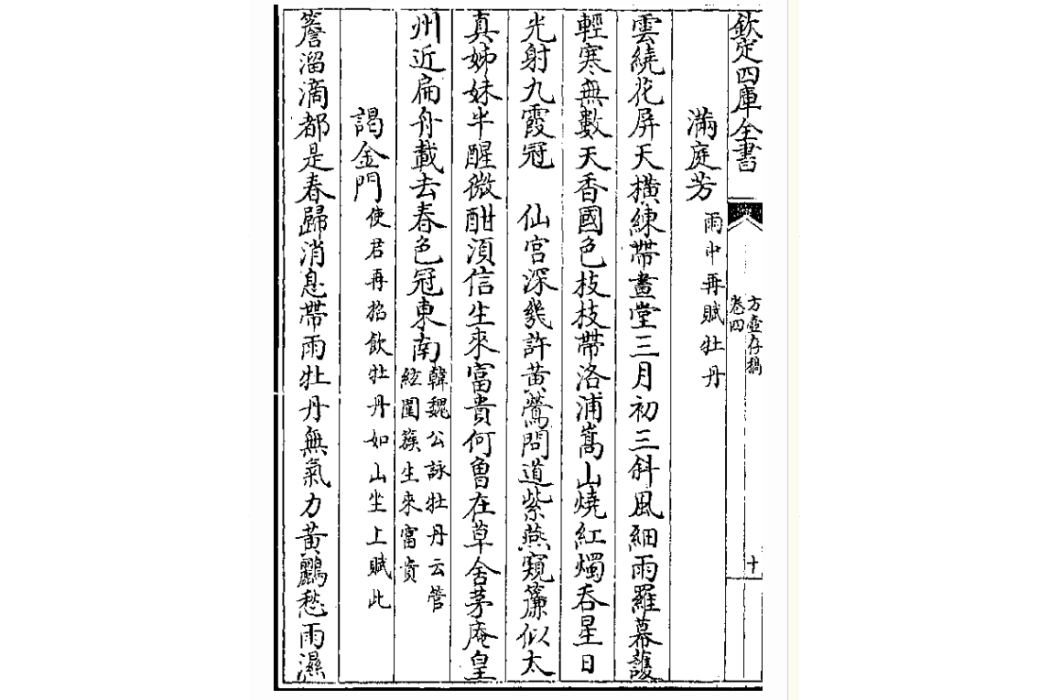 欽定四庫全書
方壺存稿
卷四
十
滿庭芳雨中再賦牡丹
雲繞花屏天橫練帶畫堂三月初三斜風細雨羅幕護
輕寒無數天香國色枝枝帶洛浦嵩山燒紅燭吞星日
光射九霞冠　仙宮深幾許黃鶯問道紫燕窺簾似太
真姊妹半醒微酣須信生來富貴何曾在草舍茅庵皇
州近扁舟載去春色冠東南
韓魏公詠牡丹云管
絃閨簇生來富貴
謁金門使君再招飲牡丹如山坐上賦此
簷溜滴都是春歸消息帶雨牡丹無氣力黃鸝愁雨濕